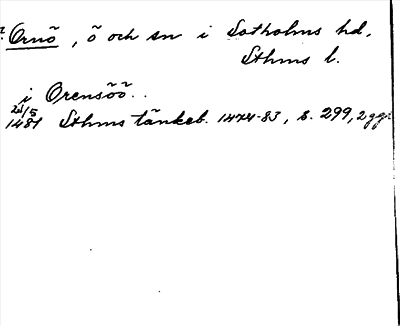 Ornö, ö och sn i Sotholms hd,
Sthms l.
i Orensöö..
25/5
1481 Sthms tänkeb. 1474-83, s. 299, 2 ggr